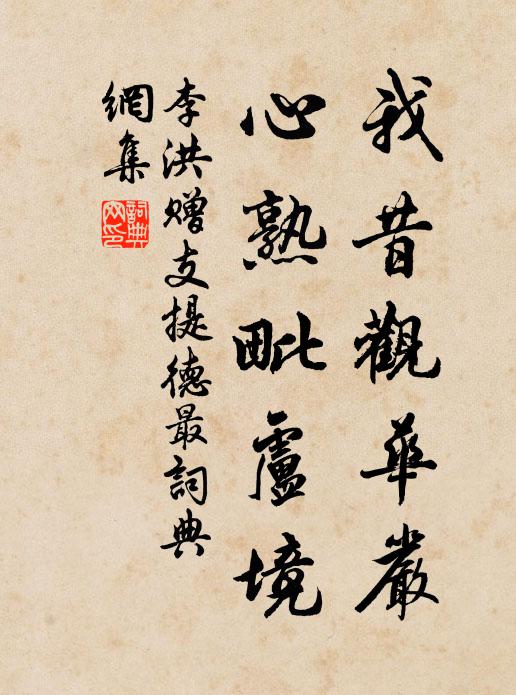 我昔觀華嚴
心熟毗盧境
李洪贈支提德最詞典
網集
詞典網印